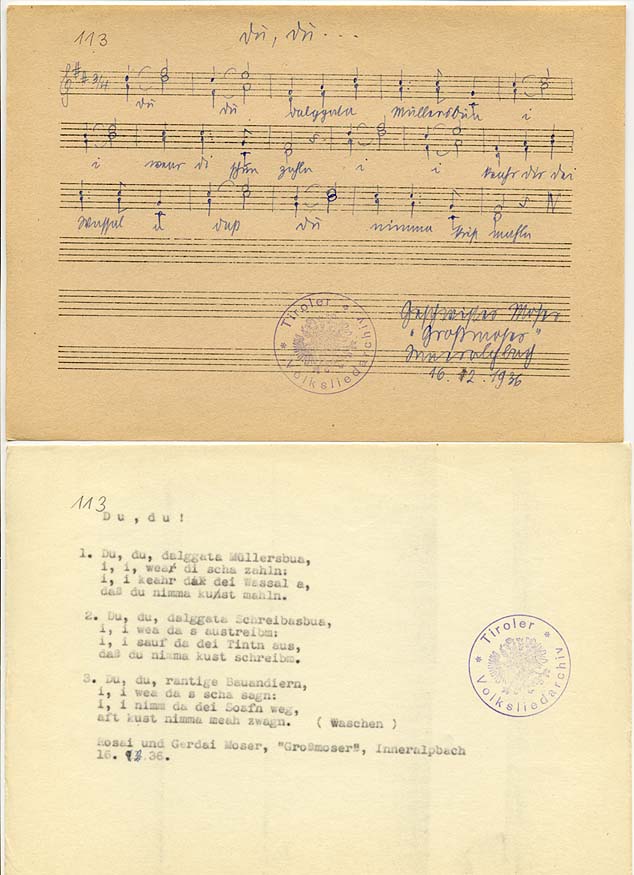 113
Du, du...
3/4
Du du dalggata Müllersbua i
i wear di schun zahln i i keahr dir dei
Wassal a daß du nimma kust mahln
Tiroler Volksliedarchiv
Geschwister Moser
"Großmoser"
Inneralpbach
16. 12. 1936
113
Du, du!
1. Du, du, dalggata Müllersbua,
i, i, wear di scha zahln:
i, i keahr dar dei Wassal a,
daß du nimma kust mahln.
2. Du, du, dalggata Schreibasbua,
i, i wea da s austreibm:
i, i sauf da dei Tintn aus,
daß du nimma kust schreibm.
3. Du, du, rantige Bauandiern,
i, i wea da s scha sagn:
i, i nimm da dei Soafn weg,
aft kust nimma meah zwagn. ( Waschen )
Rosai und Gerdai Moser, "Großmoser", Inneralpbach
16. 12.36.
Tiroler Volksliedarchiv